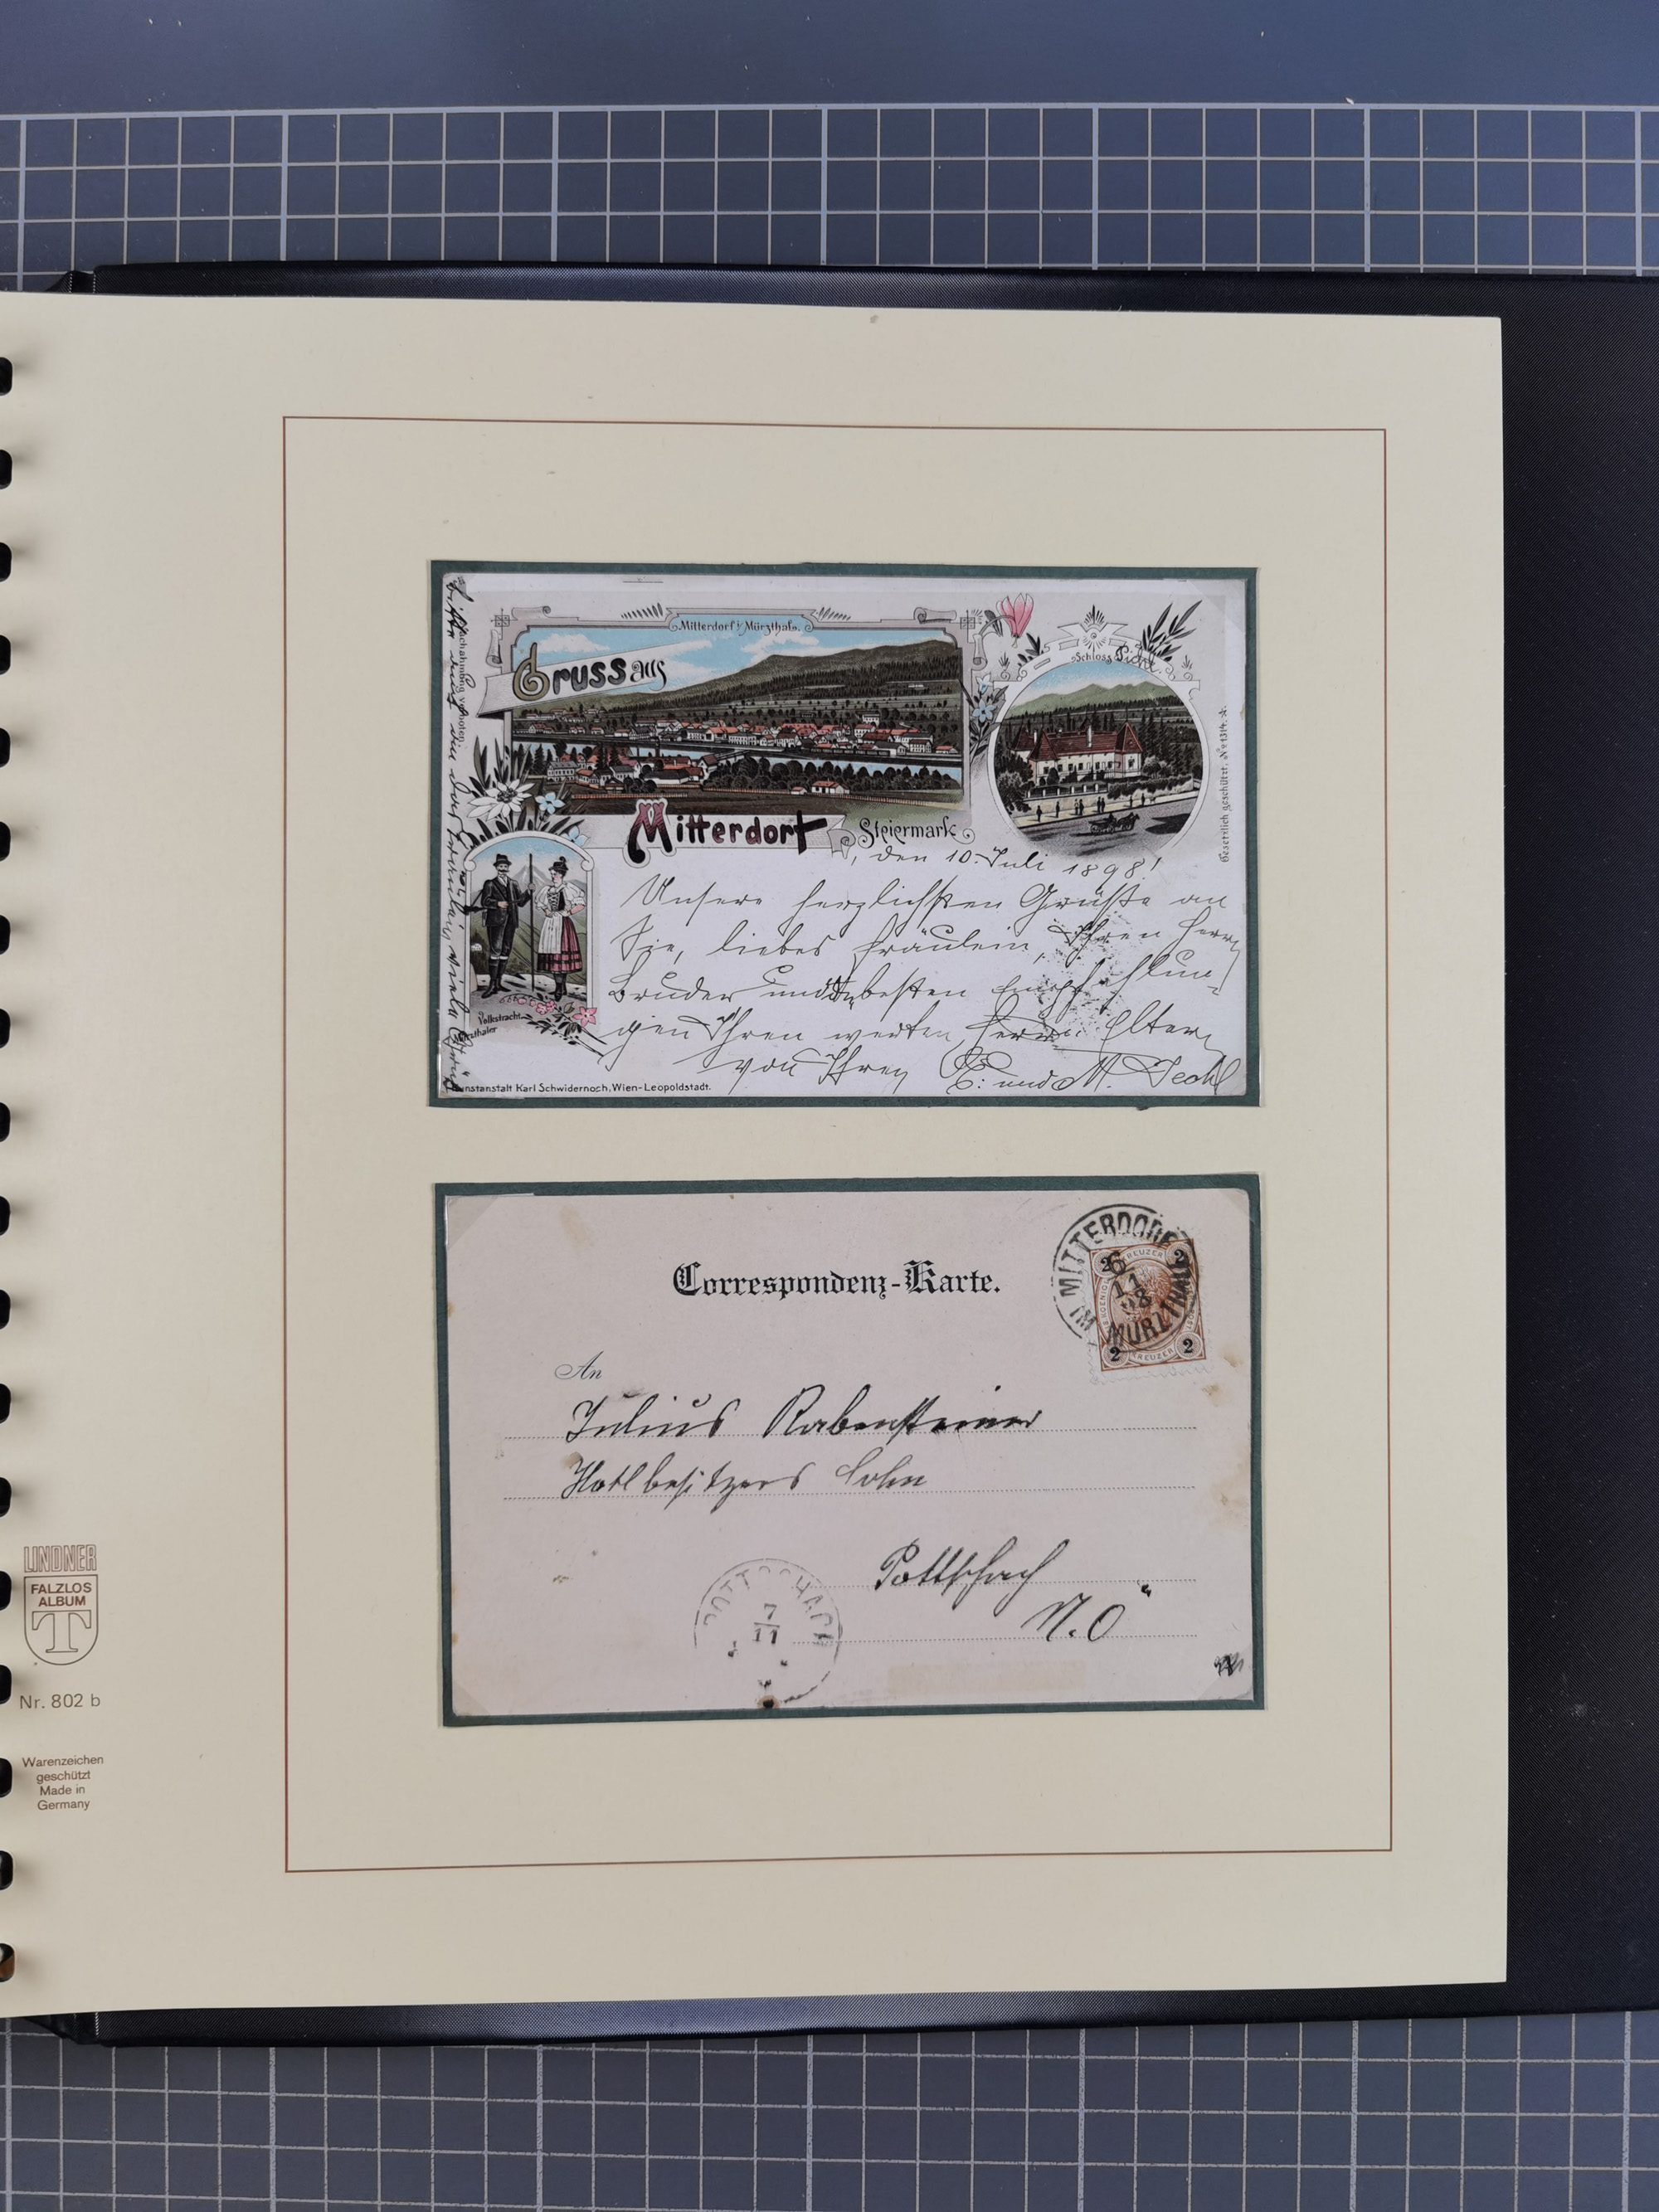 Mitterdorf i/ Mürzthale.
Gruss aus
Mitterdorf
Steiermark
Schloss Pichl.
Gesetzlich geschützt, No 1314.
Nachahmung verboten.
Volkstracht
Kunstanstalt Karl Schwidernoch, Wien-Leopoldstadt.
, den 10. Juli 1898!
Unsere herzlichsten Grüße an
Sie, liebes Fräulein, Ihren Herrn
Bruder und besten Empfehlun-
gen Ihren werten Eltern
von Ihren E. und M.
Correspondenz-Karte.
MITTERDORF
IM MÜRZTHALE
6
11
98
2 KREUZER 2
2 KREUZER 2
An
Julius Rabensteiner
Hotlbesitzers Sohn
Pottschach
N.Ö
POTTSCHACH
7
11
LINDNER
FALZLOS
ALBUM
T
Nr. 802 b
Warenzeichen
geschützt
Made in
Germany